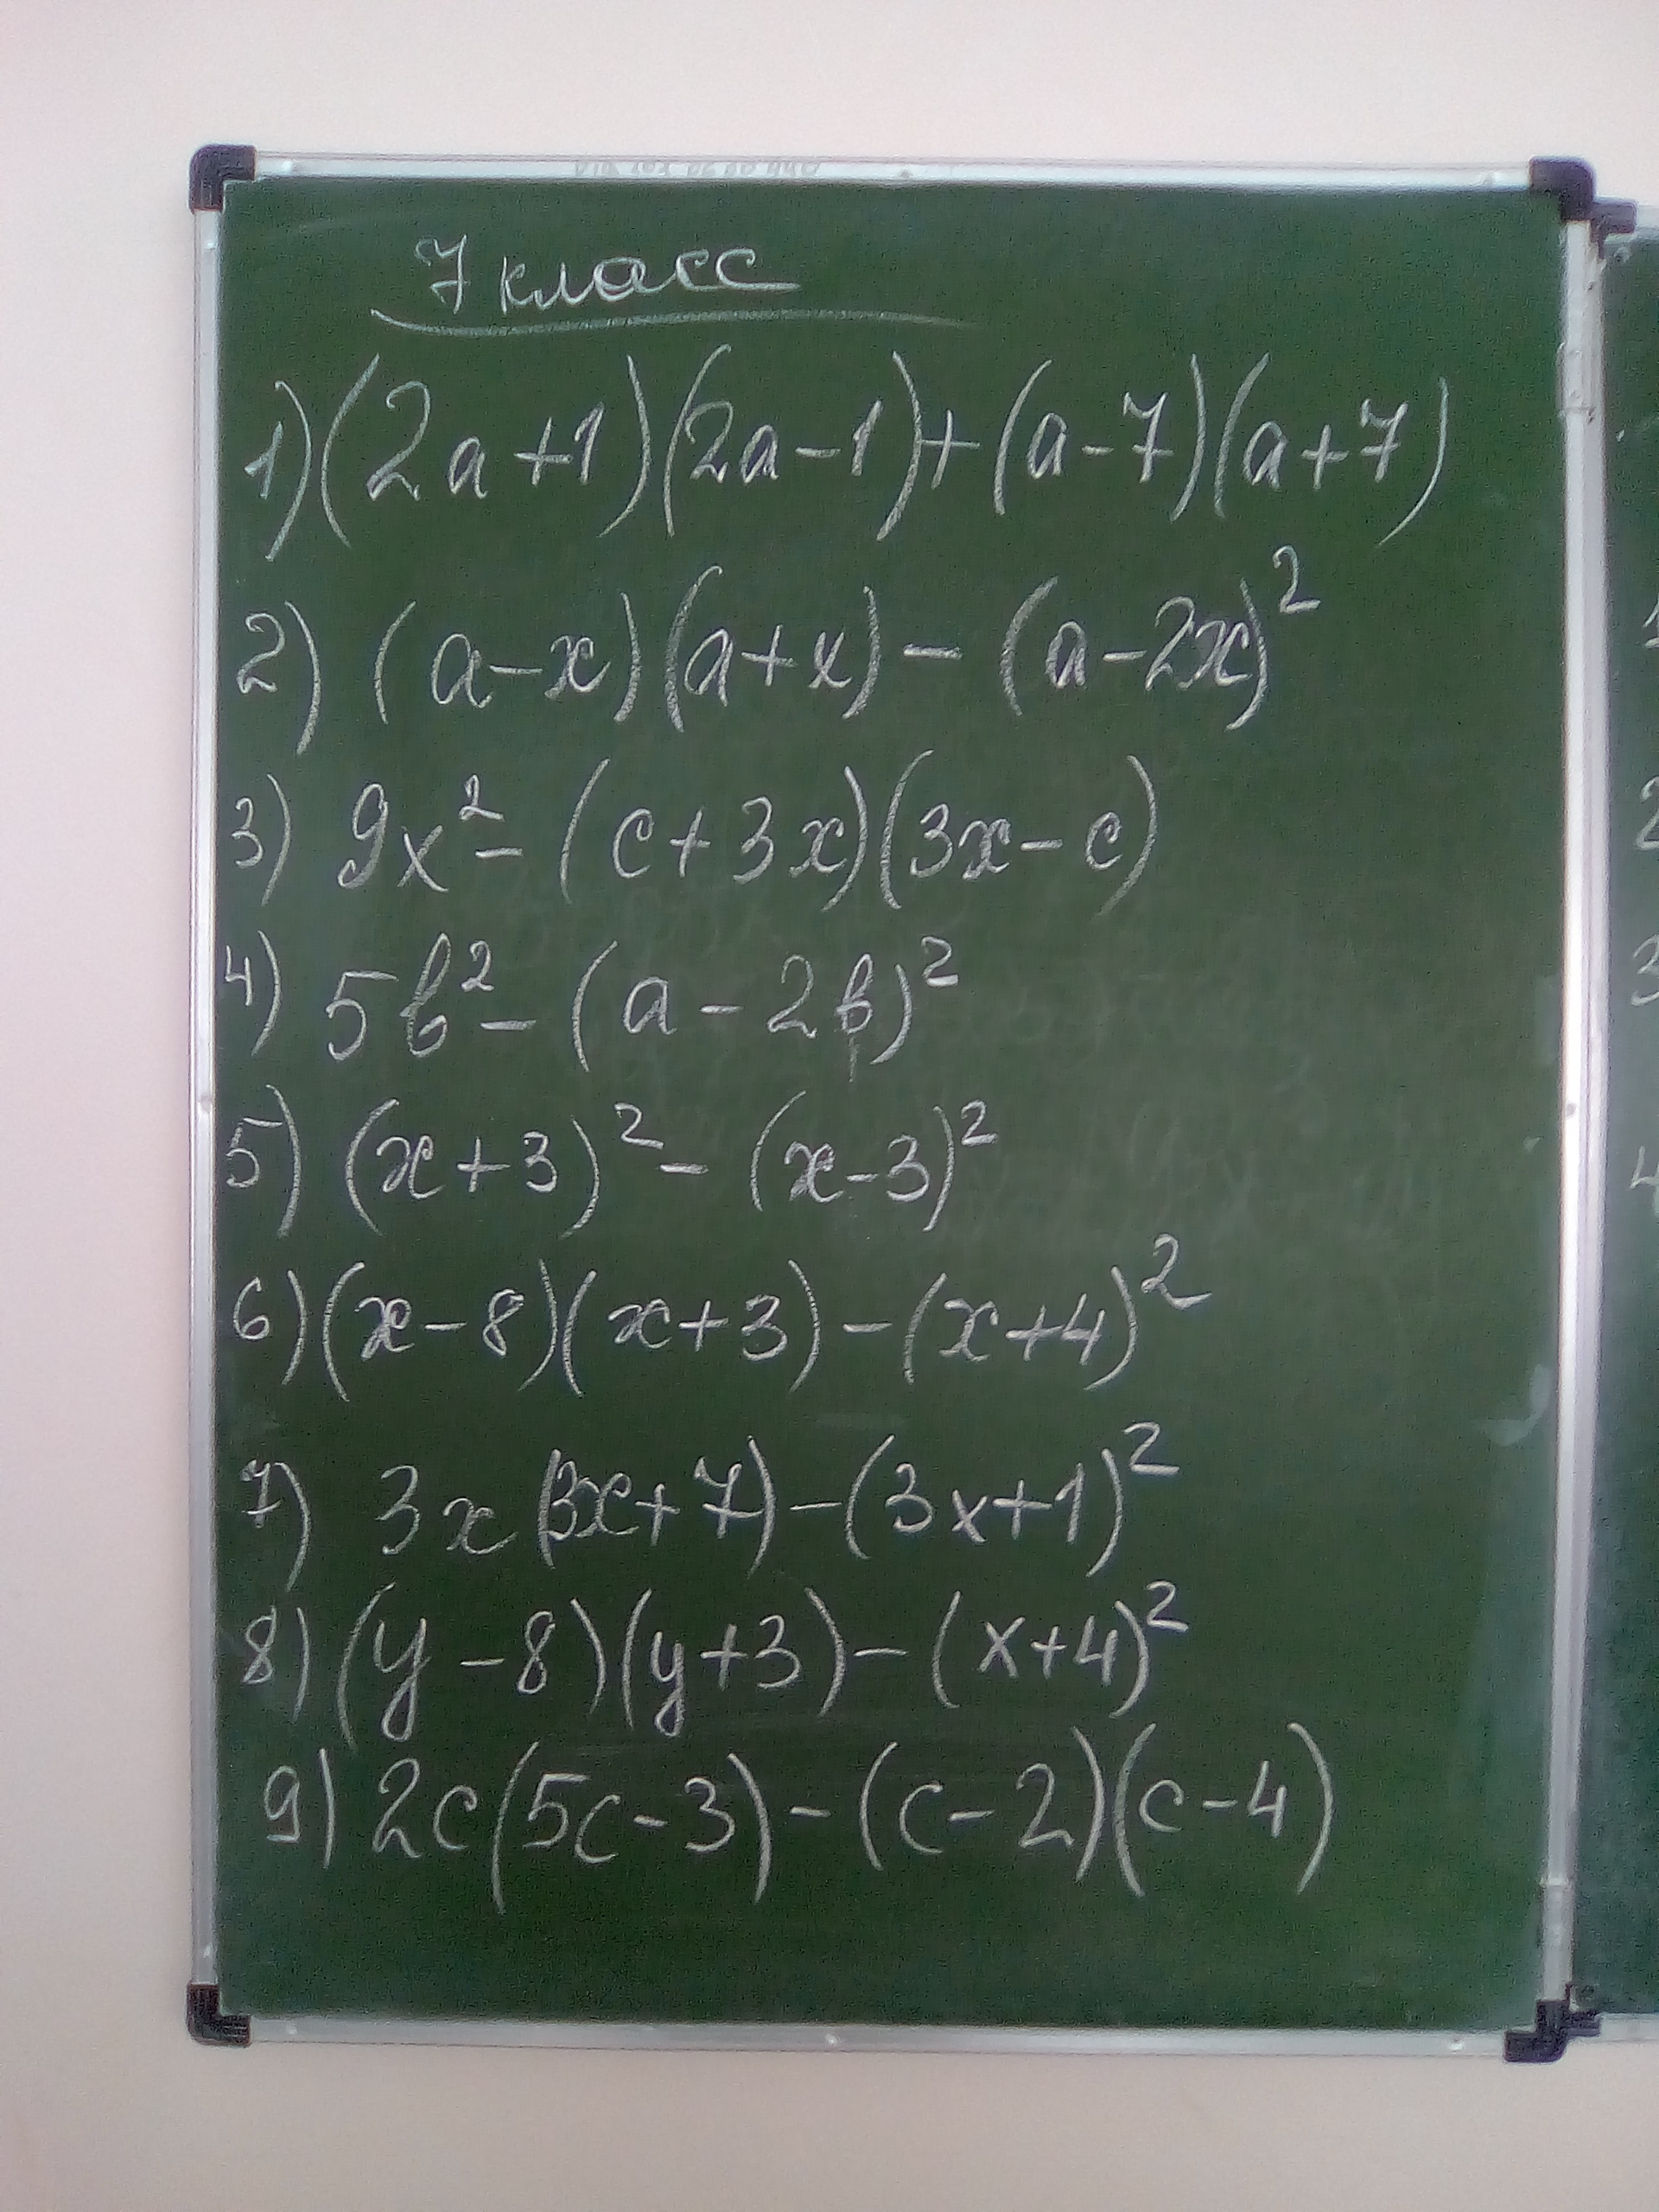 7 класс
1) (2a+1)(2a-1)+(a-7)(a+7)
2) (a-x)(a+x)-(a-2x)²
3) 9x²-(c+3x)(3x-c)
4) 5b²-(a-2b)²
5) (x+3)²-(x-3)²
6) (x-8)(x+3)-(x+4)²
7) 3x(3x+7)-(3x+1)²
8) (y-8)(y+3)-(x+4)²
9) 2c(5c-3)-(c-2)(c-4)